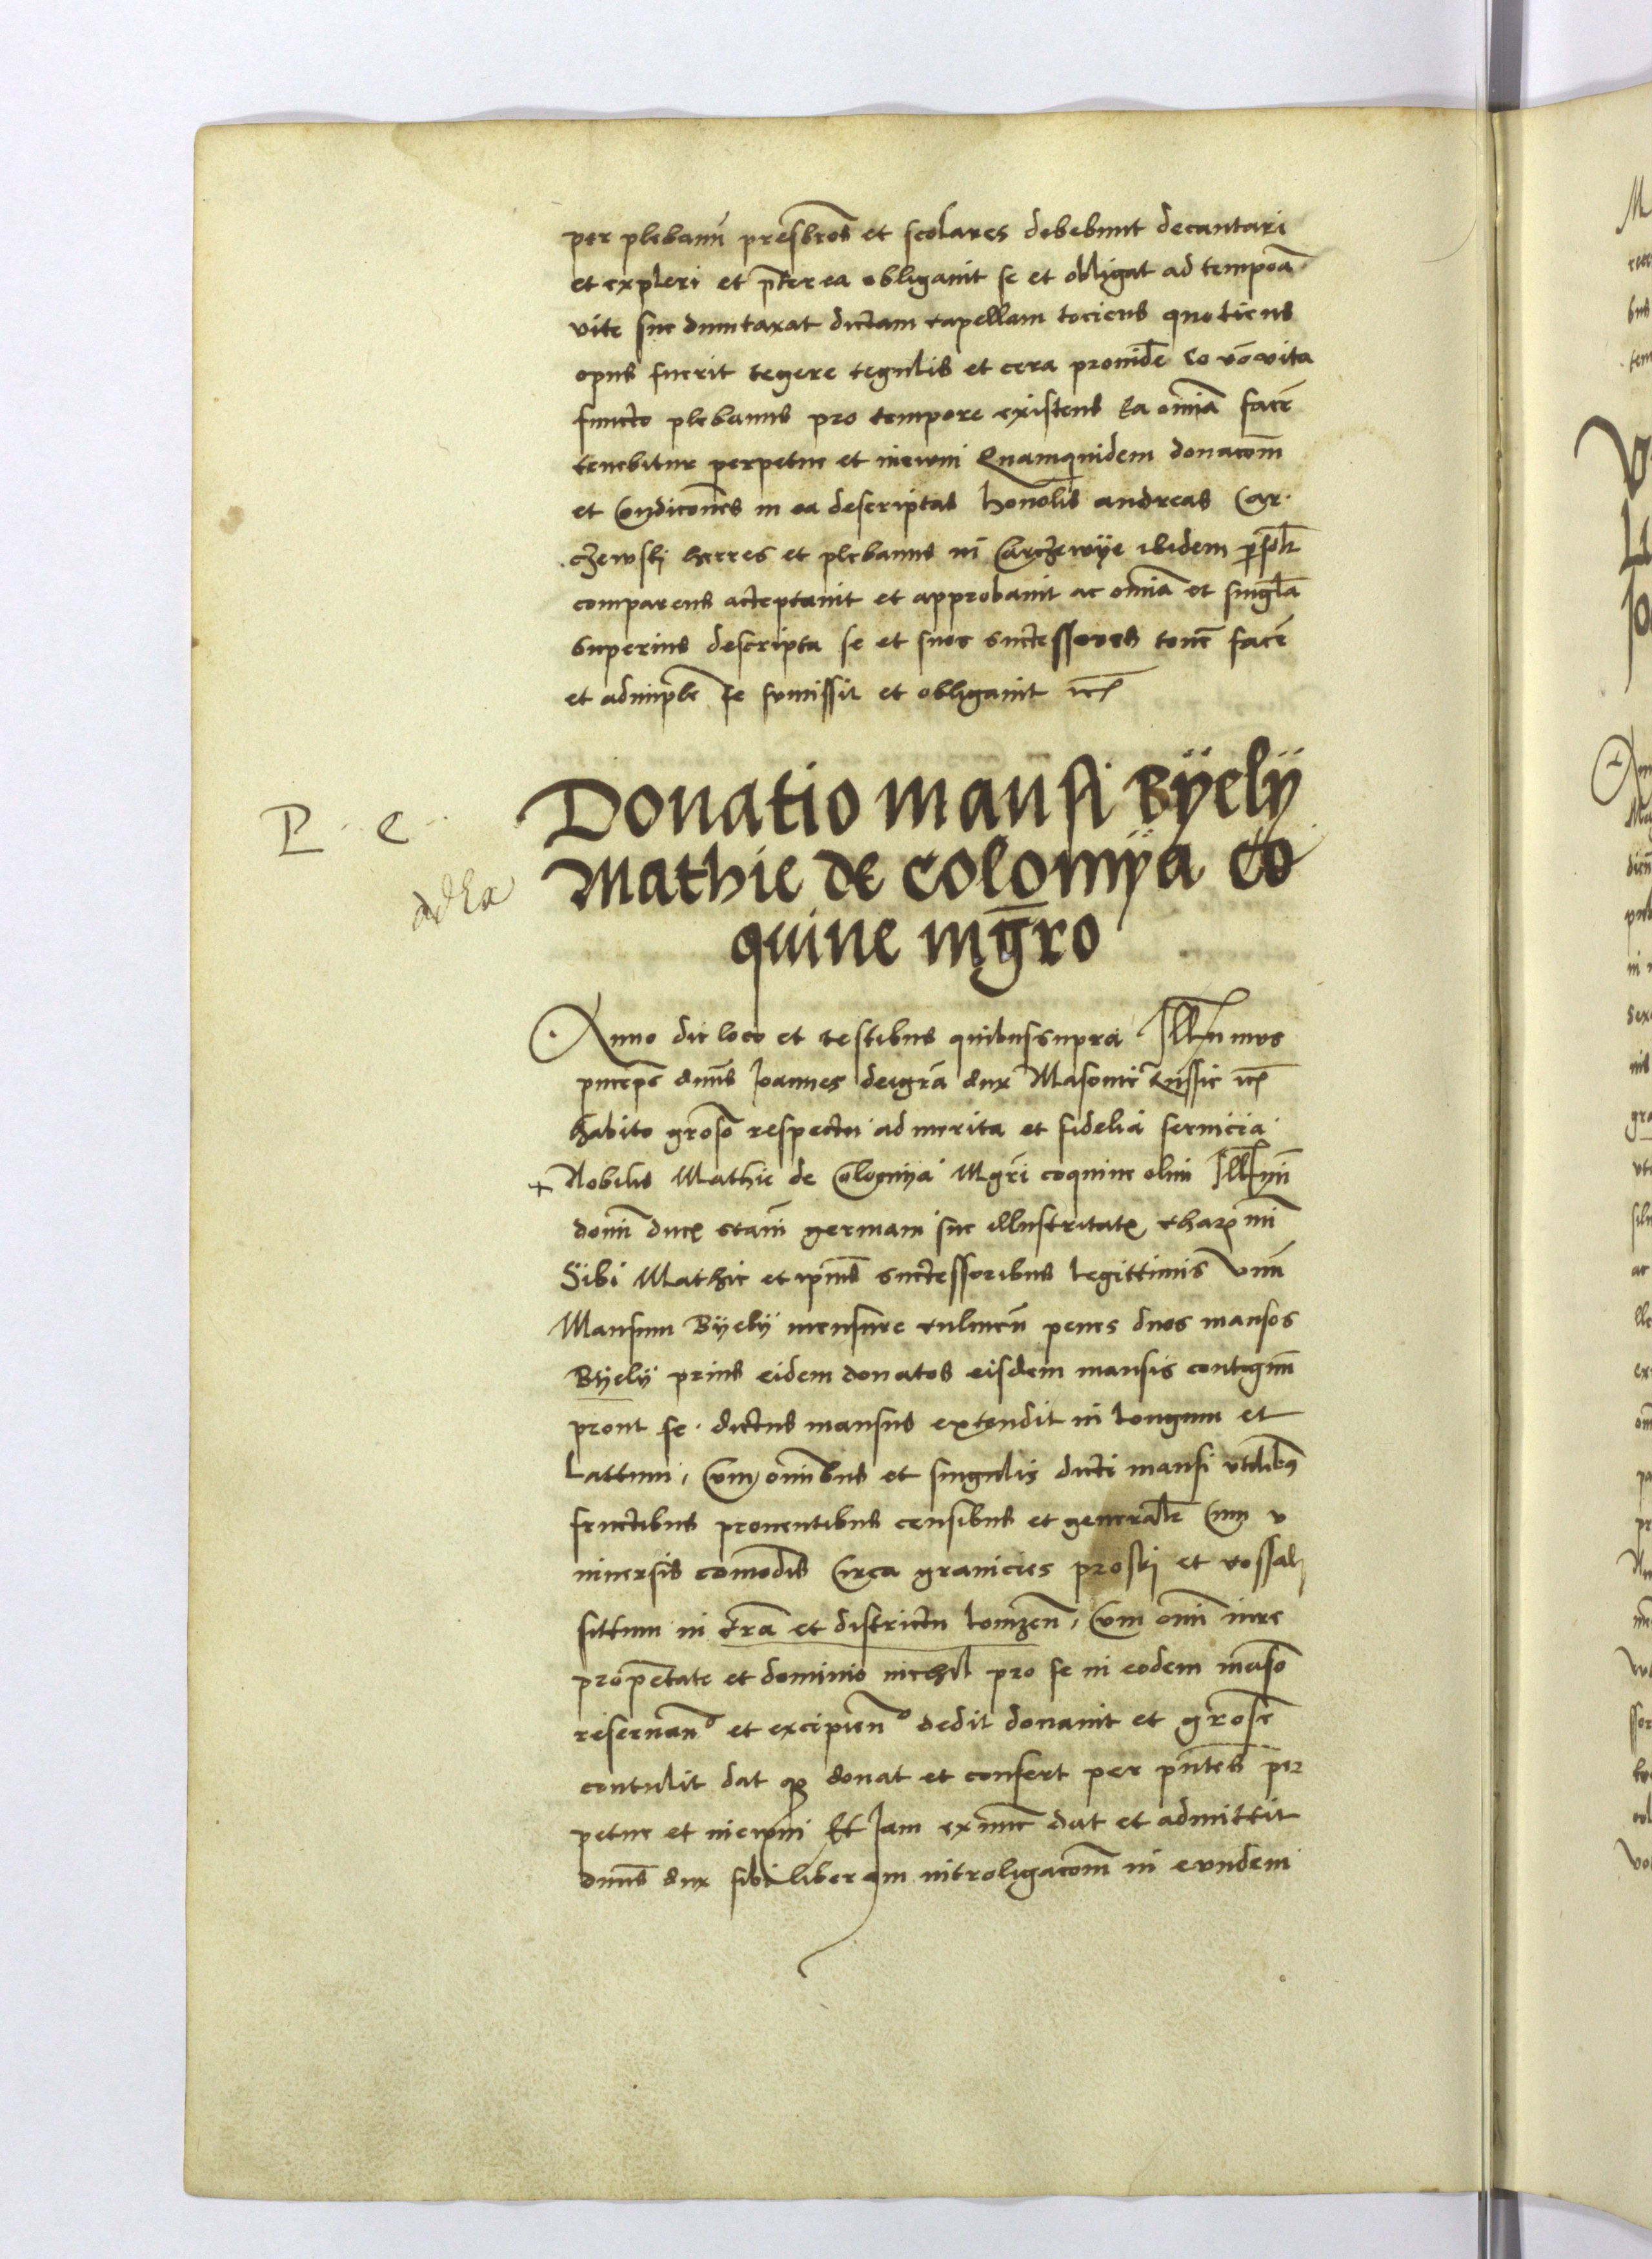 per plebanū presbrōs et scolares debebunt decantari
et expleri et p̄terea obligauit se et obligat ad tempōa
vite sue dumtaxat dictam capellam tociens quotiens
opus fuerit tegere tegulis et cera prouidē Eo vō vita
functo plebanus pro tempore existens Ea oīnia facē
tenebitur perpetue et in ewm Quamquidem donacōm
et Condicōnes in ea descriptas honōlis andreas Car
czewskj heres et plebanus in Carczewÿe ibidem p̄sōlr
comparens acceptauit et approbauit ac oīnia et singl̄a
superius descripta se et suos successores tenē facē
et adimplē se sumissit et obligauit etc
Donatio mansi Bÿelÿ
Mathie de Colomÿa Co
quine mḡro
P . . e . .
adEa
Anno die loco et testibus quibussupra Illr̄imus
princeps dnūs Joannes deigrā dux Masouie Russie etc
habito grōso respectu ad merita et fidelia seruicia
+ Nobilis Mathie de Colomÿa Mgrī coquine olim Illr̄im
domī ducis stanī germani sue illustritatis charīmi
Sibi Mathie et ipīus successoribus legittimis Vnū
Mansum Bÿelÿ mensure culmeñ penes duos mansos
Bÿelÿ prius eidem donatos eisdem mansis contiguū
prout se dictus mansus extendit in longum et
Lattum, Cum omībus et singulis dicti mansi vtilibus
fructibus prouentibus censibus et generalē Cum v
niuersis comodis Circa granicies proskj et kossakj
sittum in trā et districtu lomzeñ, Cum omī iure
propetate et dominio nichil pro se in eodem manso
reseruando et excipiendo dedit donauit et grōse
contulit dat q donat et confert per pn̄tes per
petue et in ewm Et Jam ex nunc dat et admittit
dnūs dux sibi liberam introligacōm in eundem